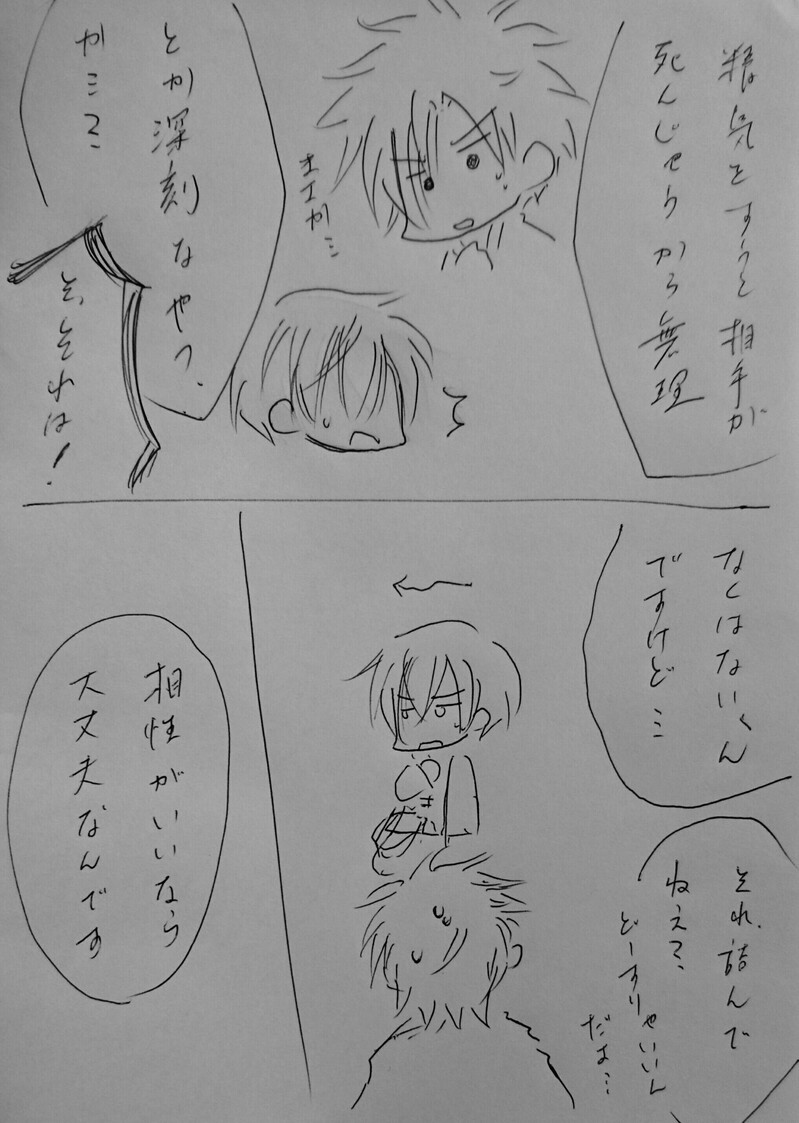 精気をすうと相手が
死んじゃうから無理
とか深刻なやつ、
か…?
オイか…
そ、それは!
なくはないん
ですけど…
それ、詰んで
ねえ?、
どーすりゃいいん
だよ…
相性がいいなら
大丈夫なんです